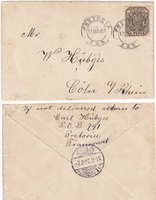 PRETORIA
Mr.
W. Hübges
Cöln a/Rhein
If not delivered return to
Curt Hübges
P.O.B 791
Pretoria
Transvaal